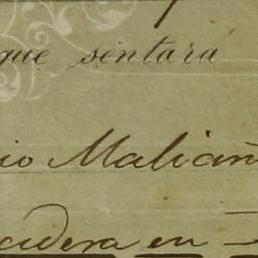 que sentará
io Maliañ
cadera en